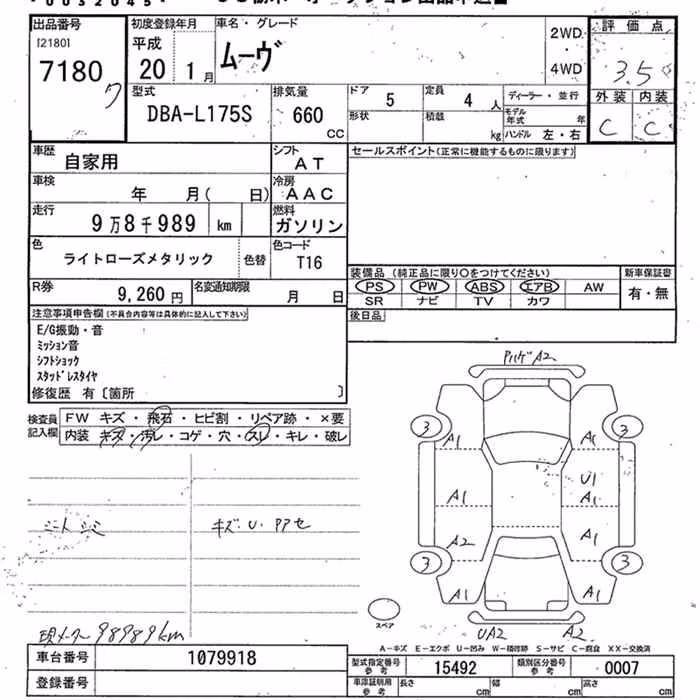 出品番号
[2180]
7180
初度登録年月
平成
20 1月
車名・グレード
ムーヴ
2WD
4WD
評価点
3.5
外装 内装
C C
型式
DBA-L175S
排気量
660
CC
ドア 5
定員 4人
ディーラー・並行
形状
積載 kg
モデル年式 年
ハンドル 左・右
車歴 自家用
シフト AT
セールスポイント(正常に機能するものに限ります)
車検 年 月( 日)
冷房 AAC
走行 9万8千989 km
燃料 ガソリン
色 ライトローズメタリック 色替
色コード T16
装備品 (純正品に限り○をつけてください) 新車保証書
PS PW ABS エアB AW 有・無
SR ナビ TV カワ
R券 9,260円
名変通知期限 月 日
後日品
注意事項申告欄(不具合内容等は具体的に記入して下さい)
E/G振動・音
ミッション音
シフトショック
スタッドレスタイヤ
修復歴 有〔箇所 〕
検査員記入欄
FW キズ・飛石・ヒビ割・リペア跡・×要
内装 キズ・汚レ・コゲ・穴・スレ・キレ・破レ
A2
3 3
A1 A1
U1
A1 A1
A2 A1
3 3
A1 A1
シート シミ
キズ・U・
スペア
UA2 A2
現メーター 98989km
A-キズ E-エクボ U-凹み W-補修跡 S-サビ C-腐食 XX-交換済
車台番号 1079918
型式指定番号参考 15492
類別区分番号参考 0007
登録番号
車庫証明用参考 長さ cm 幅 cm 高さ cm